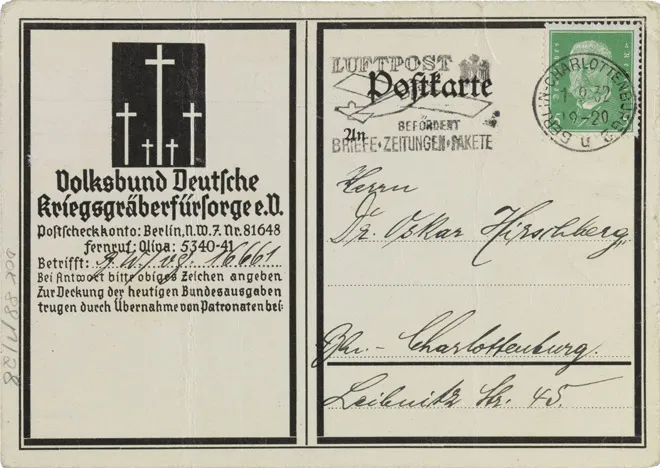 Volksbund Deutsche
Kriegsgräberfürsorge e.V.
Postscheckkonto: Berlin, N.W.7. Nr. 81648
fernruf: Oliva: 5340-41
Betrifft: 16661
Bei Antwort bitte obiges Zeichen angeben
Zur Deckung der heutigen Bundesausgaben
trugen durch Übernahme von Patronaten bei:
LUFTPOST
BEFÖRDERT
BRIEFE·ZEITUNGEN·PAKETE
BERLIN-CHARLOTTENBURG 2
32
19-20
n
Postkarte
An
Herrn
Dr. Oskar Hirschberg,
Bln. - Charlottenburg.
Leibnitz Str. 45.